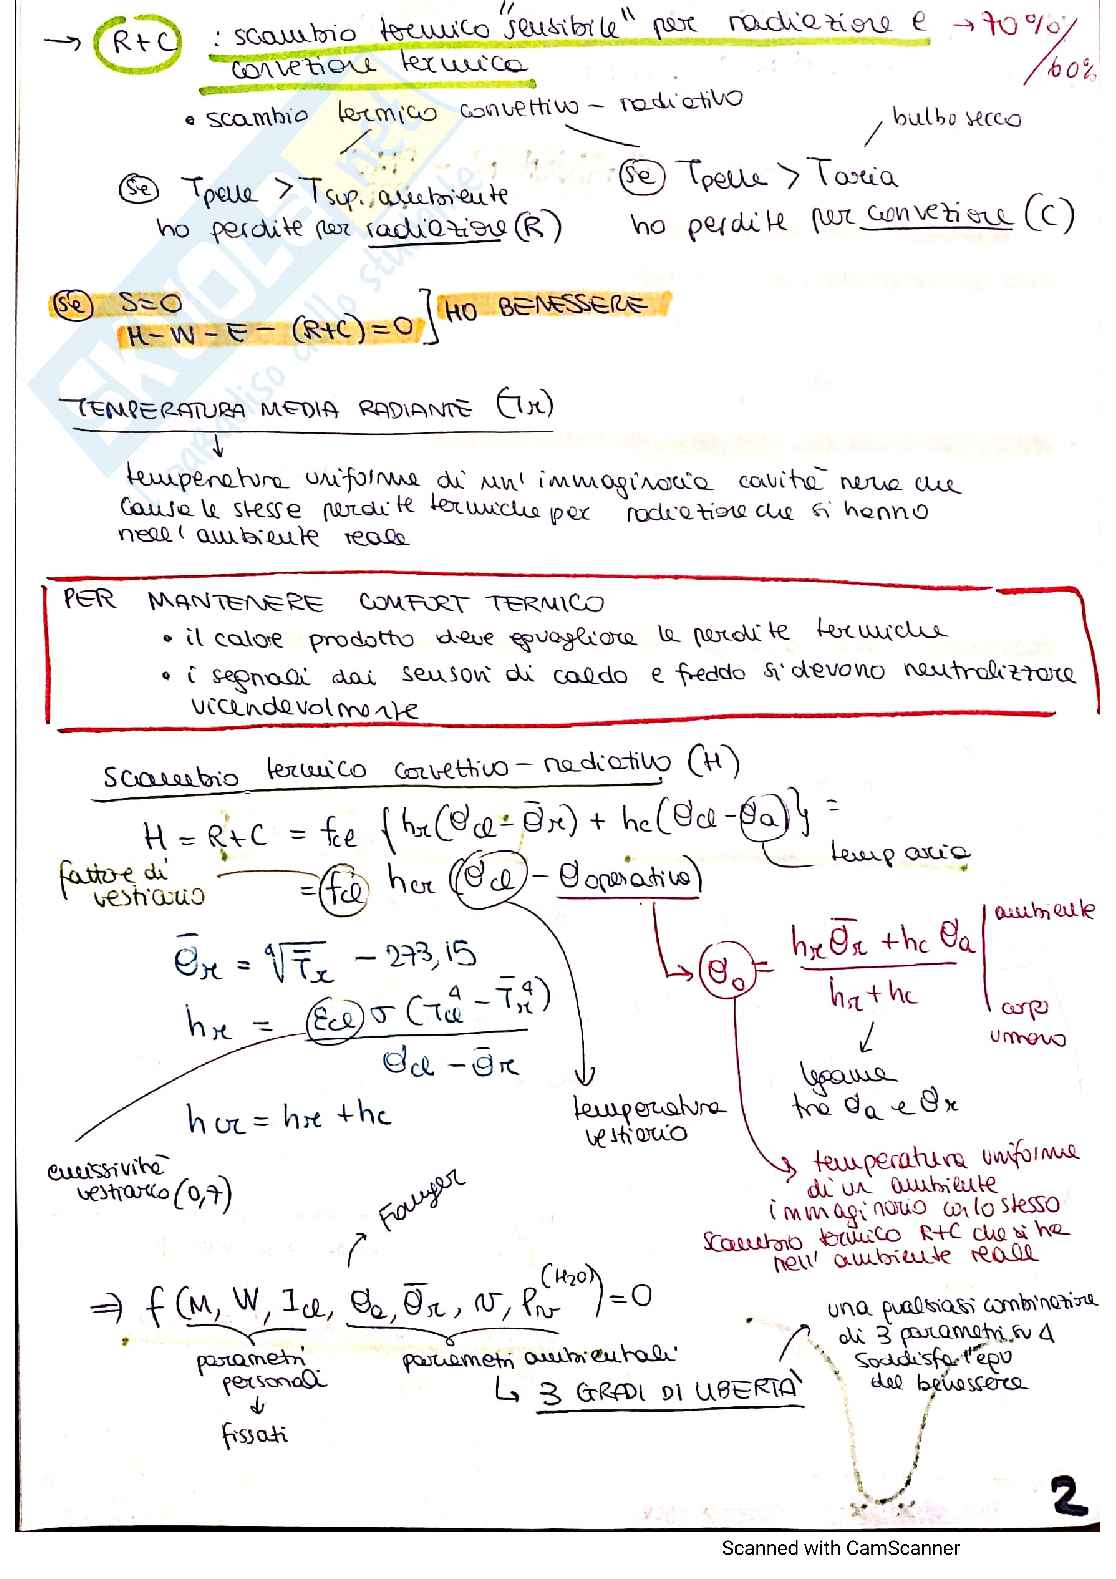 → R+C : scambio termico "sensibile" per radiazione e → 70%/60%
convezione termica
• scambio termico convettivo - radiativo
bulbo secco
Se Tpelle > Tsup. ambiente
ho perdite per radiazione (R)
Se Tpelle > Taria
ho perdite per convezione (C)
Se S=0
H-W-E-(R+C)=0 ] HO BENESSERE
TEMPERATURA MEDIA RADIANTE (Tr)
temperatura uniforme di un' immaginaria cavità nera che
causa le stesse perdite termiche per radiazione che si hanno
nell' ambiente reale
PER MANTENERE COMFORT TERMICO
• il calore prodotto deve eguagliare le perdite termiche
• i segnali dai sensori di caldo e freddo si devono neutralizzare
vicendevolmente
Scambio termico convettivo - radiativo (H)
H = R+C = fcl {hr(θcl - θ̄r) + hc(θcl - θa)} =
temp aria
fattore di
vestiario
= fcl hcr (θcl - θoperativo)
θ̄r = ⁴√T̄r - 273,15
θo = (hr θ̄r + hc θa) / (hr + hc)
ambiente
corpo
umano
hr = εcl σ (Tcl⁴ - T̄r⁴) / (θcl - θ̄r)
legame
tra θa e θr
hcr = hr + hc
temperatura
vestiario
emissività
vestiario (0,7)
temperatura uniforme
di un ambiente
immaginario con lo stesso
scambio termico R+C che si ha
nell' ambiente reale
Fanger
⇒ f (M, W, Icl, θa, θ̄r, v, Pv (H2O)) = 0
parametri
personali
↓
fissati
parametri ambientali
↳ 3 GRADI DI LIBERTÀ
una qualsiasi combinazione
di 3 parametri su 4
soddisfa l'equ
del benessere
2
SKUOLA.net
paradiso dello studente
Scanned with CamScanner